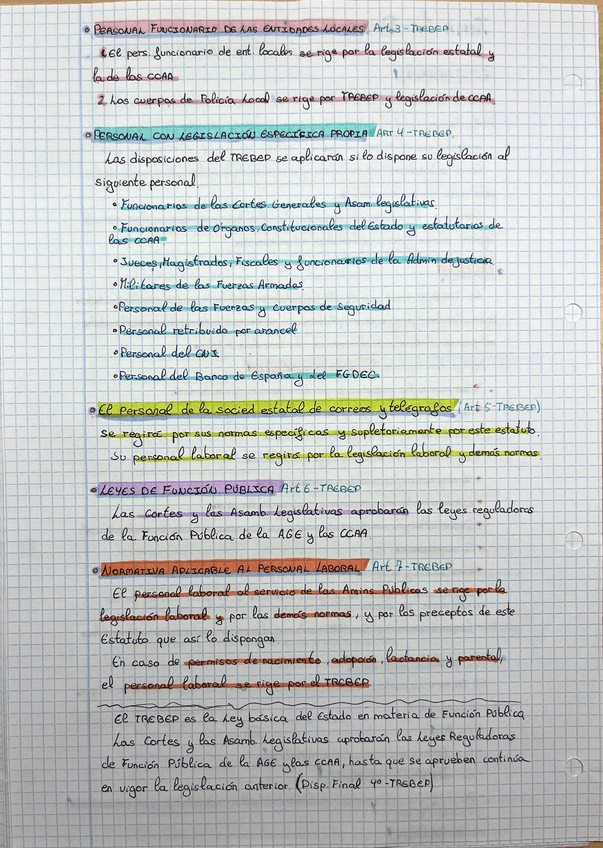 • PERSONAL FUNCIONARIO DE LAS ENTIDADES LOCALES Art. 3 - TREBEP
1. El pers. funcionario de ent. locales se rige por la legislación estatal y
la de las CCAA
2. Los cuerpos de Policía Local se rige por TREBEP y legislación de CCAA
• PERSONAL CON LEGISLACIÓN ESPECÍFICA PROPIA Art 4 - TREBEP
Las disposiciones del TREBEP se aplicarán si lo dispone su legislación al
siguiente personal.
• Funcionarios de las Cortes Generales y Asam legislativas
• Funcionarios de Órganos, Constitucionales del Estado y estatutarios de
las CCAA
• Jueces, Magistrados, Fiscales y funcionarios de la Admin de justicia
• Militares de las Fuerzas Armadas
• Personal de las Fuerzas y cuerpos de Seguridad
• Personal retribuido por arancel
• Personal del CNI
• Personal del Banco de España y del FGDEC
• El Personal de la socied estatal de correos y telégrafos (Art 5 - TREBEP)
Se regirá por sus normas específicas y supletoriamente por este estatuto.
Su personal laboral se regirá por la legislación laboral y demás normas
• LEYES DE FUNCIÓN PÚBLICA Art 6 - TREBEP
Las Cortes y las Asamb. Legislativas aprobarán las leyes reguladoras
de la Función Pública de la AGE y las CCAA
• NORMATIVA APLICABLE AL PERSONAL LABORAL Art 7 - TREBEP
El personal laboral al servicio de las Amins Públicas se rige por la
legislación laboral y por las demás normas, y por los preceptos de este
Estatuto que así lo dispongan.
En caso de permisos de nacimiento, adopción, lactancia y parental,
el personal laboral se rige por el TREBEP
El TREBEP es la Ley básica del Estado en materia de Función Pública
Las Cortes y las Asamb. Legislativas aprobarán las Leyes Reguladoras
de Función Pública de la AGE y las CCAA, hasta que se aprueben continúa
en vigor la legislación anterior (Disp. Final 4º - TREBEP)